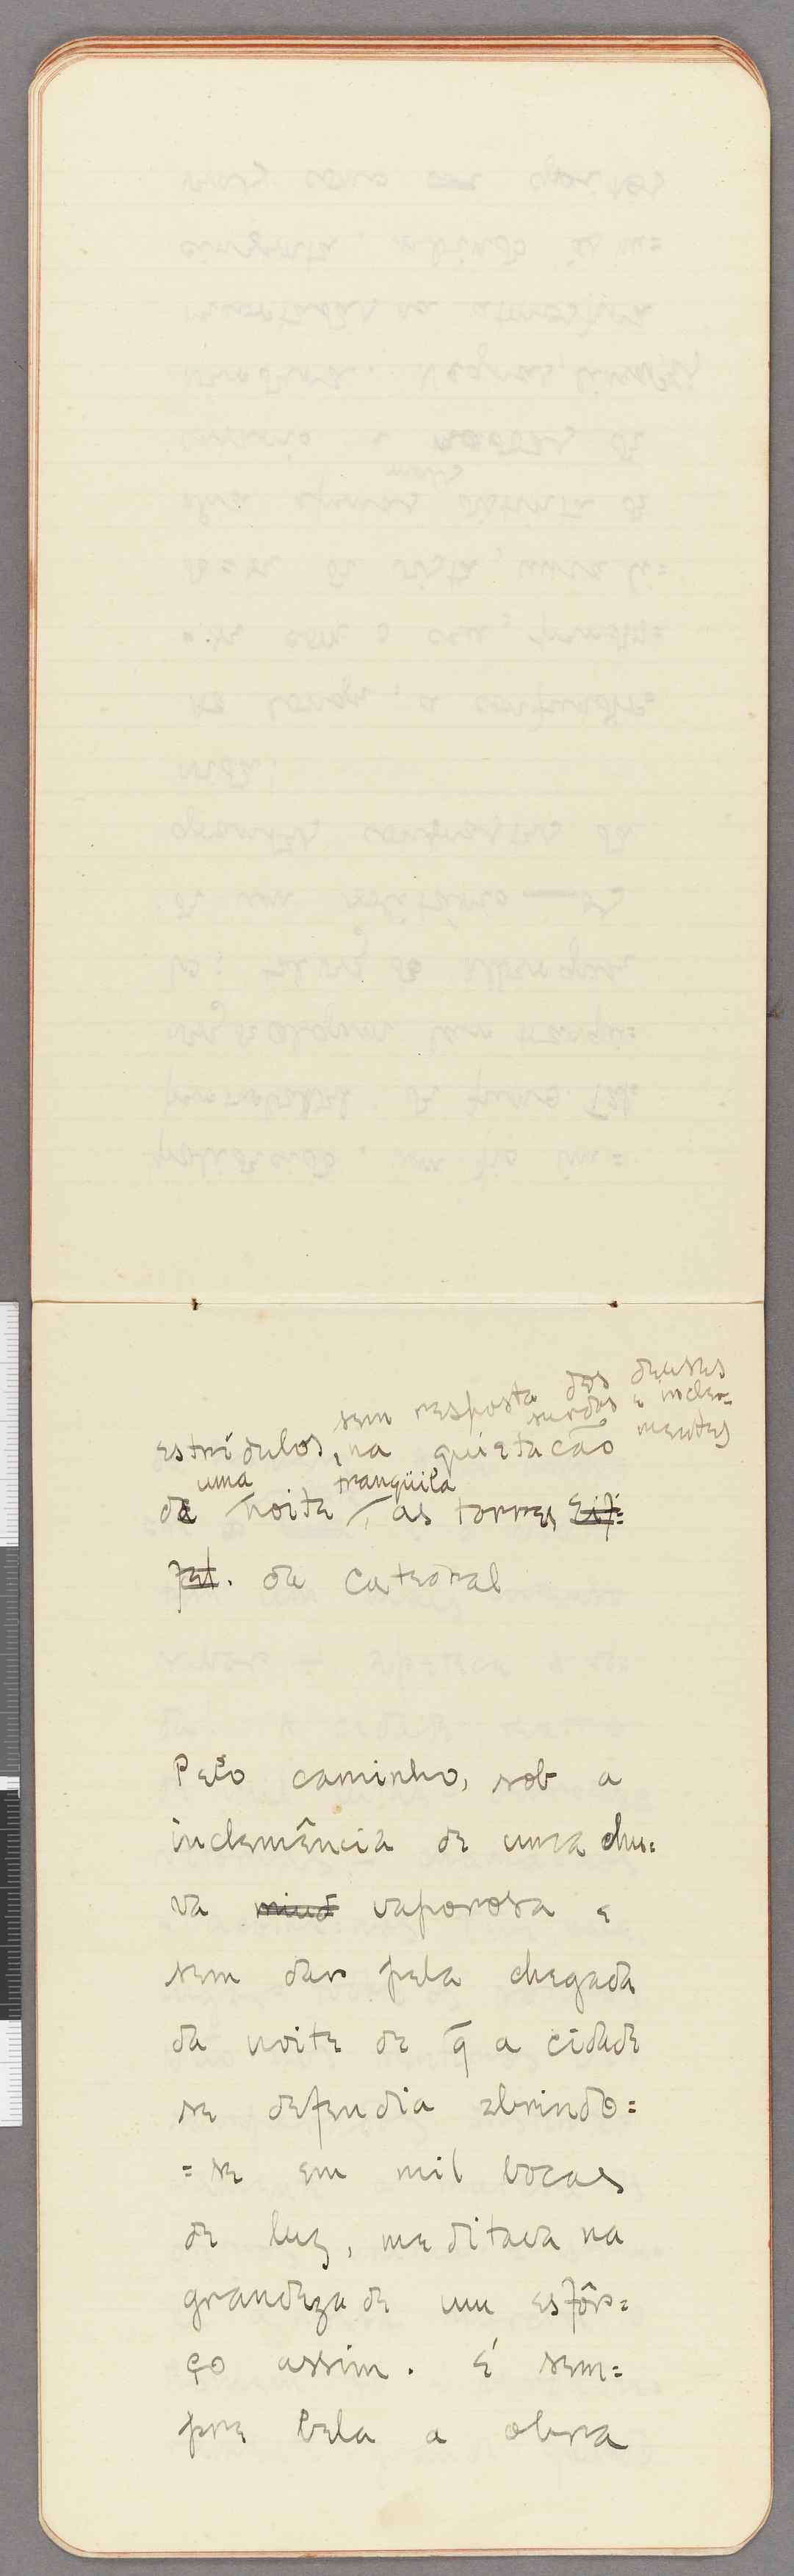 sem resposta dos deuses
surdos e inclem=
mentes
estrídulos, na quietacão
uma tranqüila
de noite, as torres Eif=
fel. da Catedral
Pelo caminho, sob a
inclemência de uma chu=
va miud vaporosa e
sem dar pela chegada
da noite de q̄ a cidade
se defendia abrindo=
=se em mil bocas
de luz, meditava na
grandeza de um esfôr=
ço assim. É sem=
pre bela a obra